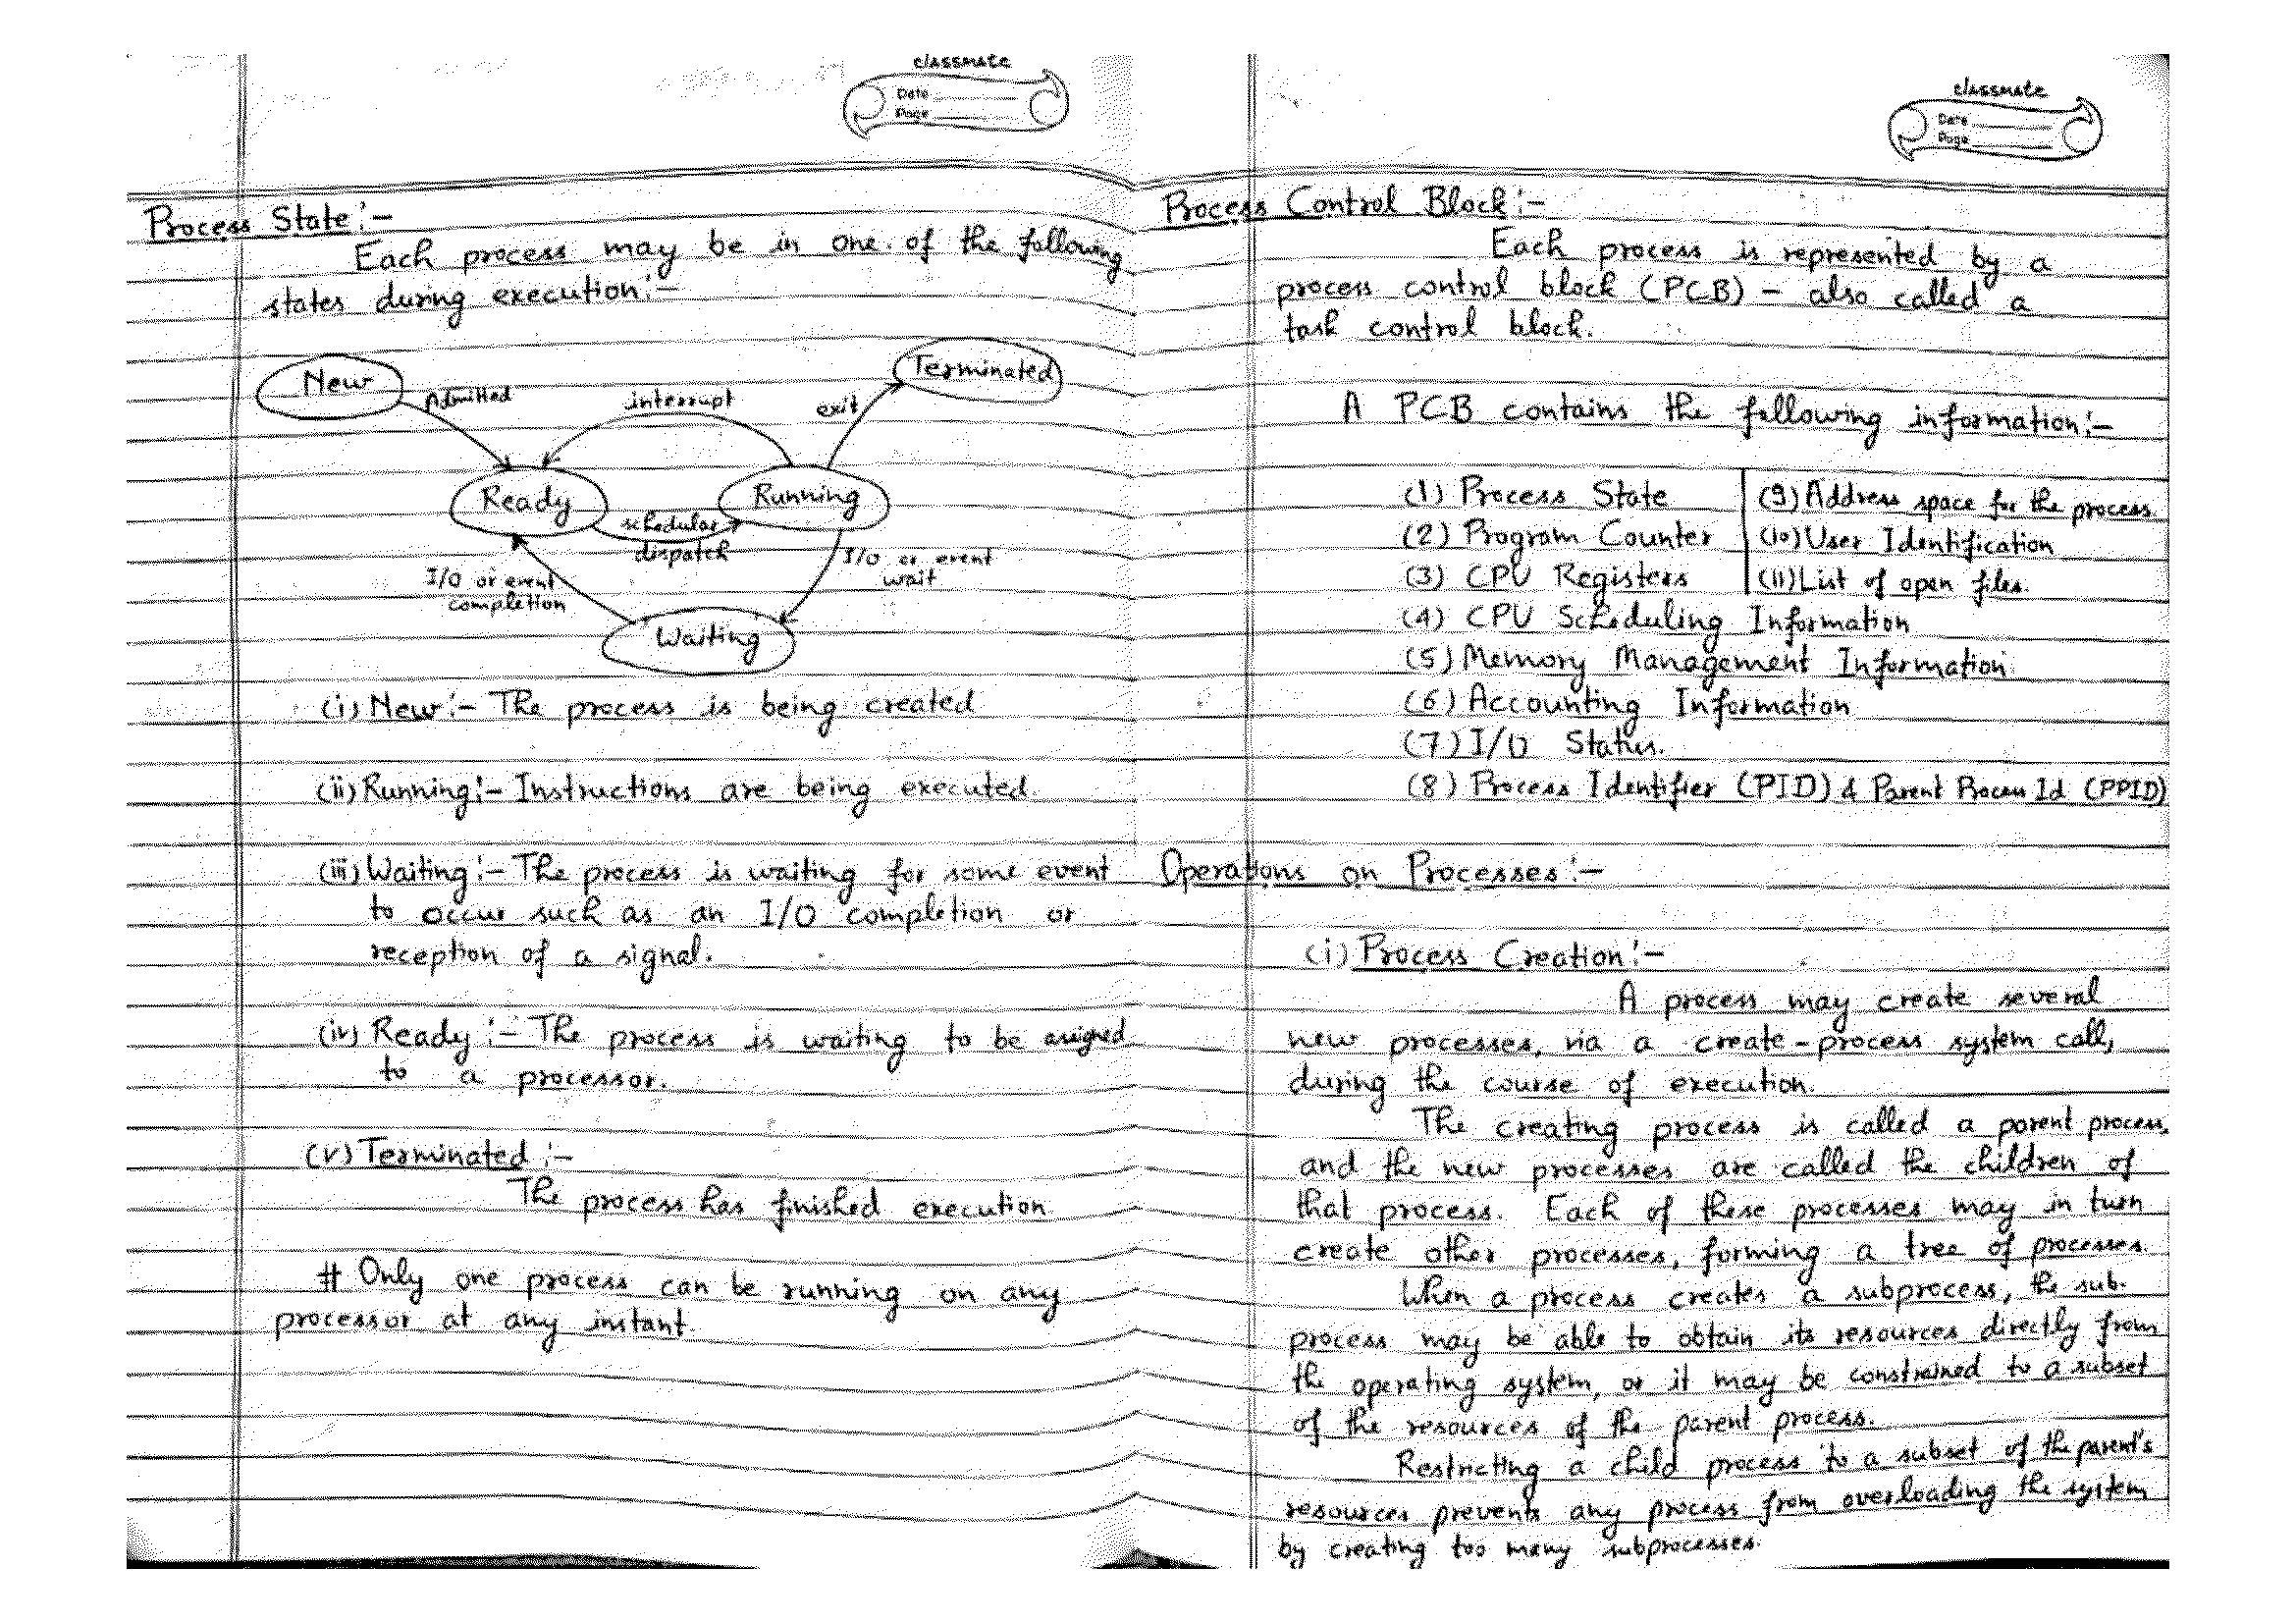 classmate
Date
Page
Process State:-
Each process may be in one of the following
states during execution:-
New
Terminated
Admitted
interrupt
exit
Ready
Running
schedular
dispatch
I/O or event
wait
I/O or event
completion
Waiting
(i) New:- The process is being created
(ii) Running:- Instructions are being executed.
(iii) Waiting:- The process is waiting for some event
to occur such as an I/O completion or
reception of a signal.
(iv) Ready:- The process is waiting to be assigned
to a processor.
(v) Terminated:-
The process has finished execution.
# Only one process can be running on any
processor at any instant.
classmate
Date
Page
Process Control Block:-
Each process is represented by a
process control block (PCB) - also called a
task control block.
A PCB contains the following information:-
(1) Process State
(2) Program Counter
(3) CPU Registers
(4) CPU Scheduling Information
(5) Memory Management Information
(6) Accounting Information
(7) I/O Status.
(8) Process Identifier (PID) & Parent Process Id (PPID)
(9) Address space for the process
(10) User Identification
(11) List of open files.
Operations on Processes:-
(i) Process Creation:-
A process may create several
new processes, via a create-process system call,
during the course of execution.
The creating process is called a parent process,
and the new processes are called the children of
that process. Each of these processes may in turn
create other processes, forming a tree of processes.
When a process creates a subprocess, the sub-
process may be able to obtain its resources directly from
the operating system, or it may be constrained to a subset
of the resources of the parent process.
Restricting a child process to a subset of the parent's
resources prevents any process from overloading the system
by creating too many subprocesses.